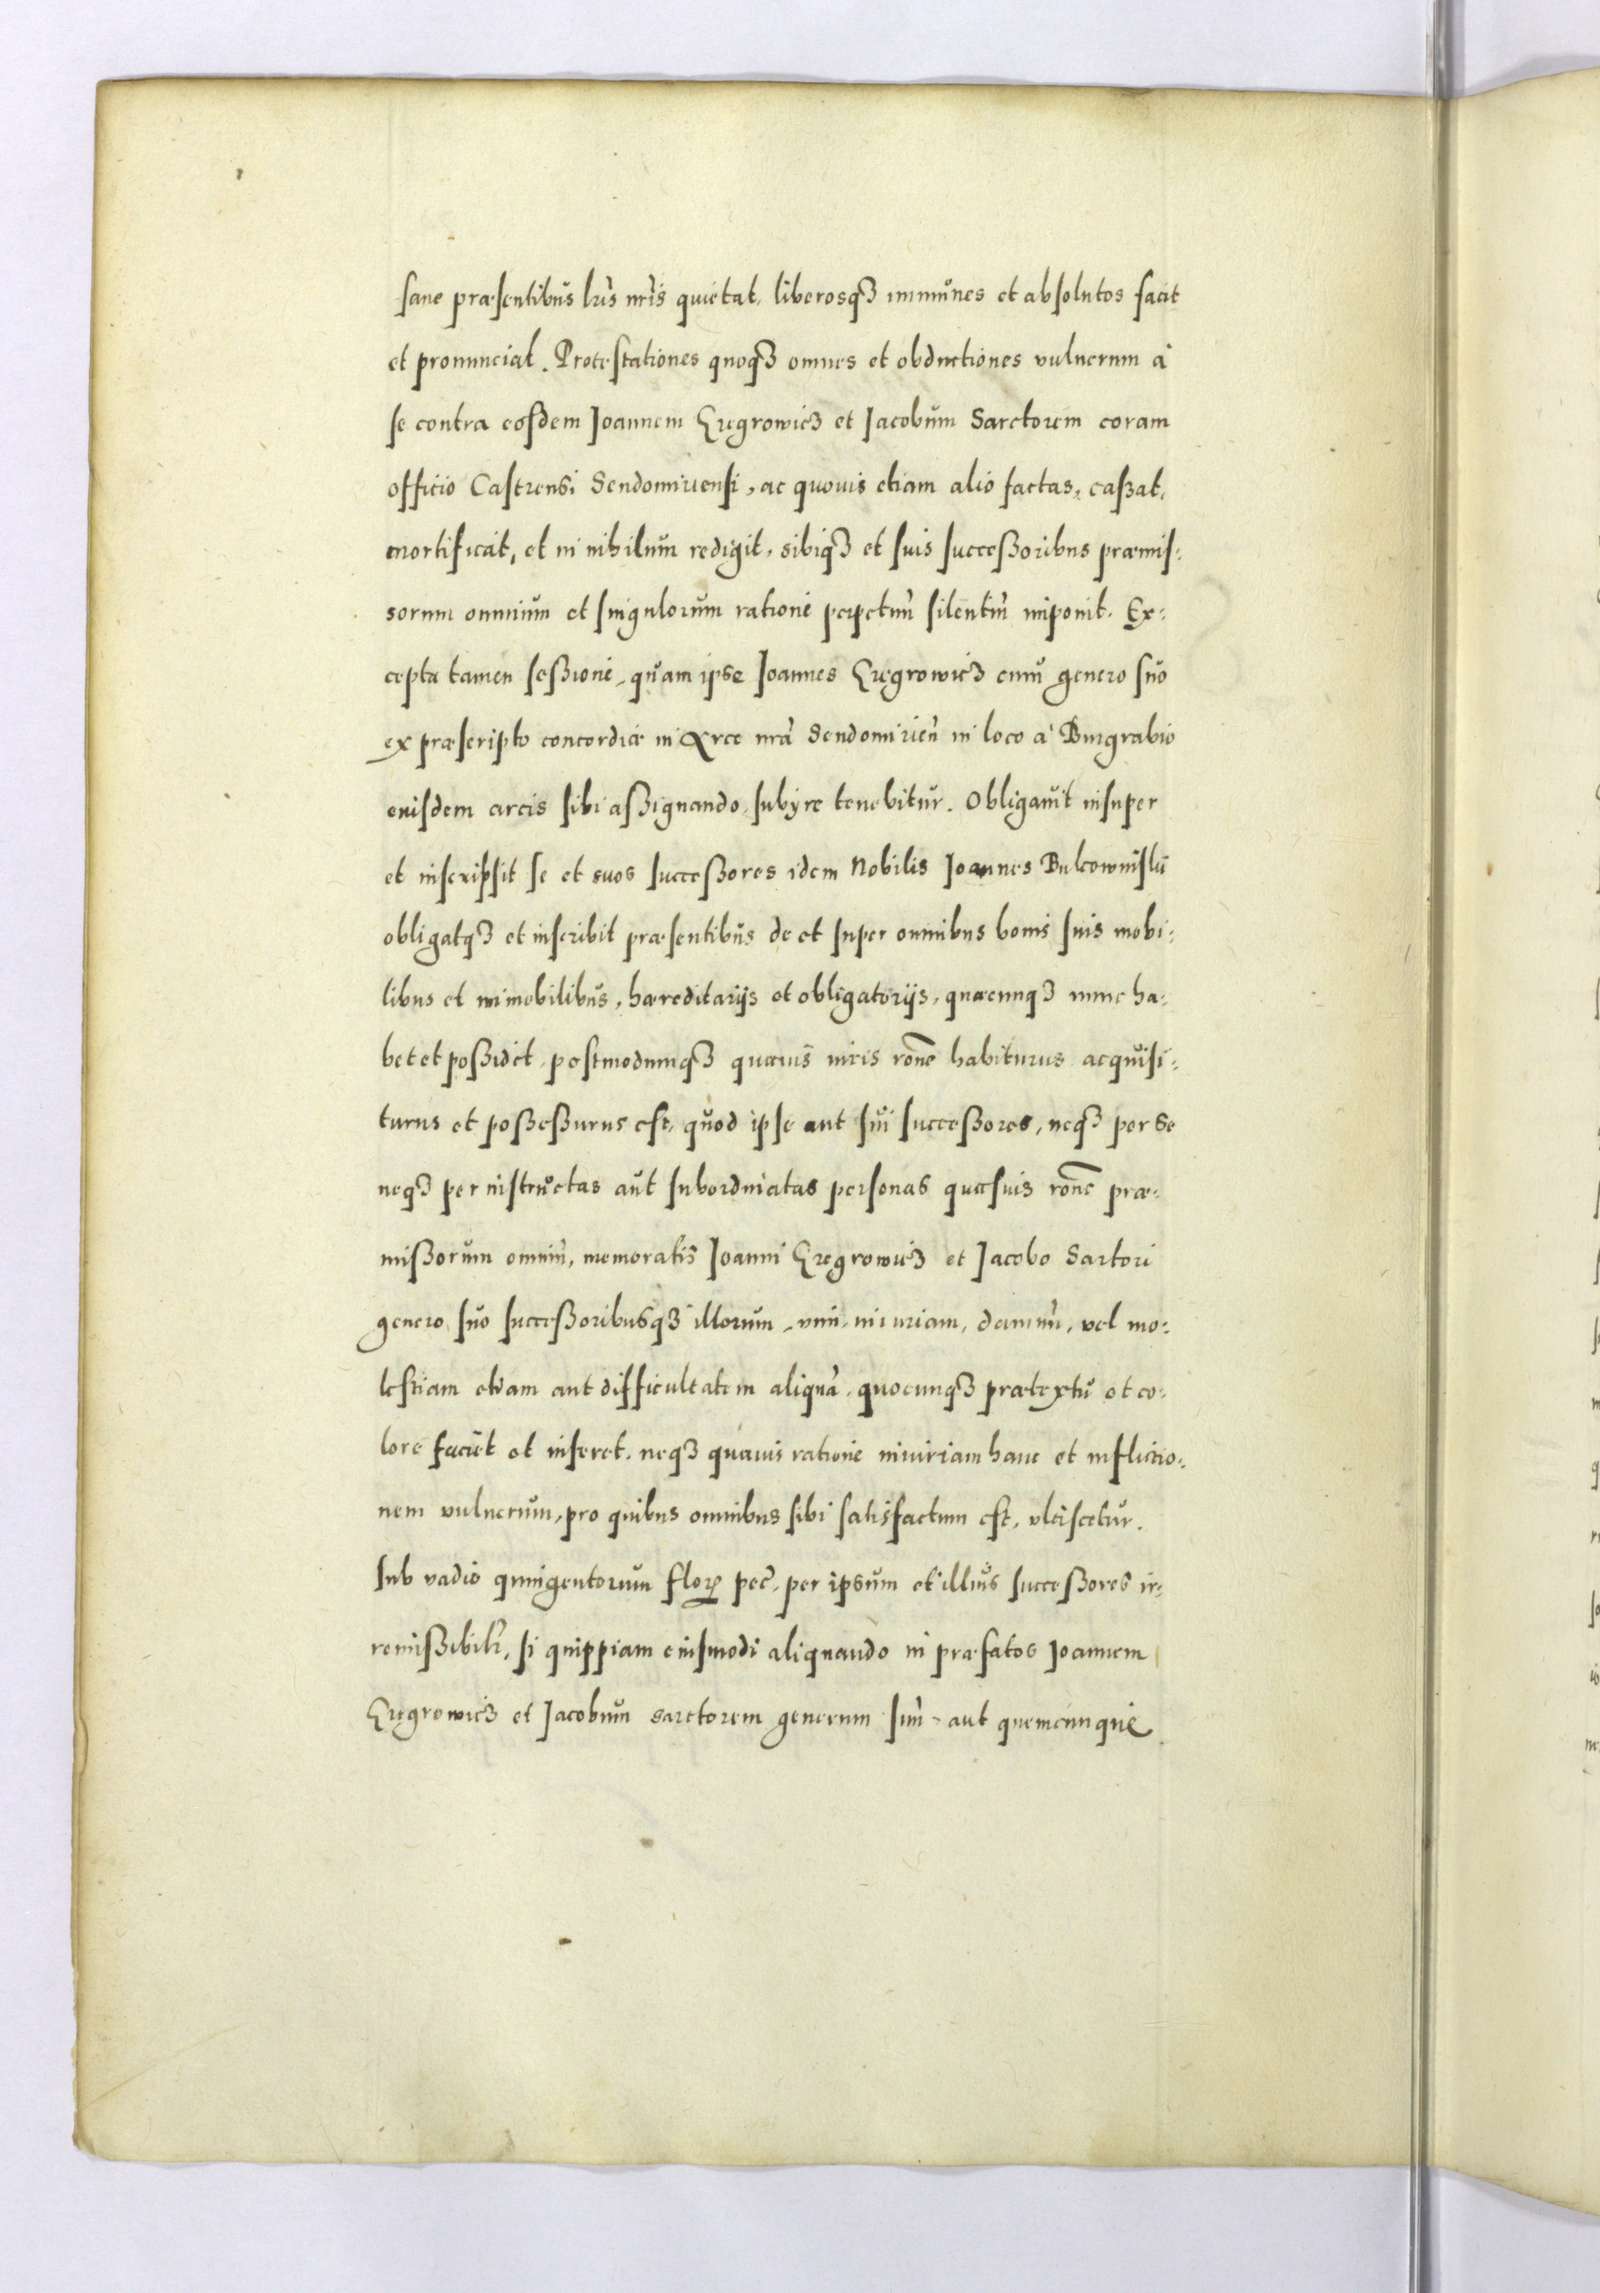 sane præsentibus lr̃is nr̃is quietat, liberosq3 immunes et absolutos facit
et pronunciat. Protestationes quoq3 omnes et obductiones vulnerum à
se contra eosdem Joannem Gregrowicz et Jacobum Sarctorem coram
officio Castrensi Sendomiriensi, ac quovis etiam alio factas, cassat,
mortificat, et in nihilum redigit, sibiq3 et suis successoribus præmis-
sorum omnium et singulorum ratione perpetuũ silentiũ imponit. Ex-
cepta tamen sessione, quam ipse Joannes Gregrowicz cum genero suo
ex præscripto concordiæ in Arce nrã Sendomirieñ in loco à Burgrabio
eiusdem arcis sibi assignando subire tenebitur. Obligavit insuper
et inscripsit se et suos successores idem Nobilis Joannes
obligatq3 et inscribit præsentibus de et super omnibus bonis suis mobi-
libus et immobilibus, hæreditarijs et obligatorijs, quæcunq3 nunc ha-
bet et possidet, postmodumq3 quævis iuris rõne habiturus acquisi-
turus et possessurus est, quod ipse aut sui successores, neq3 per se
neq3 per instructas aut subordinatas personas quasvis rõne præ-
missorum omniũ, memoratis Joanni Gregrowicz et Jacobo Sartori
genero suo successoribusq3 illorum, vim, iniuriam, damnũ, vel mo-
lestiam etiam aut difficultatem aliquã, quocunq3 prætextu et co-
lore faciet et inferet, neq3 quavis ratione iniuriam hanc et inflictio-
nem vulnerum, pro quibus omnibus sibi satisfactum est, ulciscetur.
Sub vadio quingentorum flor pec, per ipsum et illius successores ir-
remissibilr, si quippiam eiusmodi aliquando in præfatos Joannem
Gregrowicz et Jacobum sarctorem generum suũ, aut quemcunque